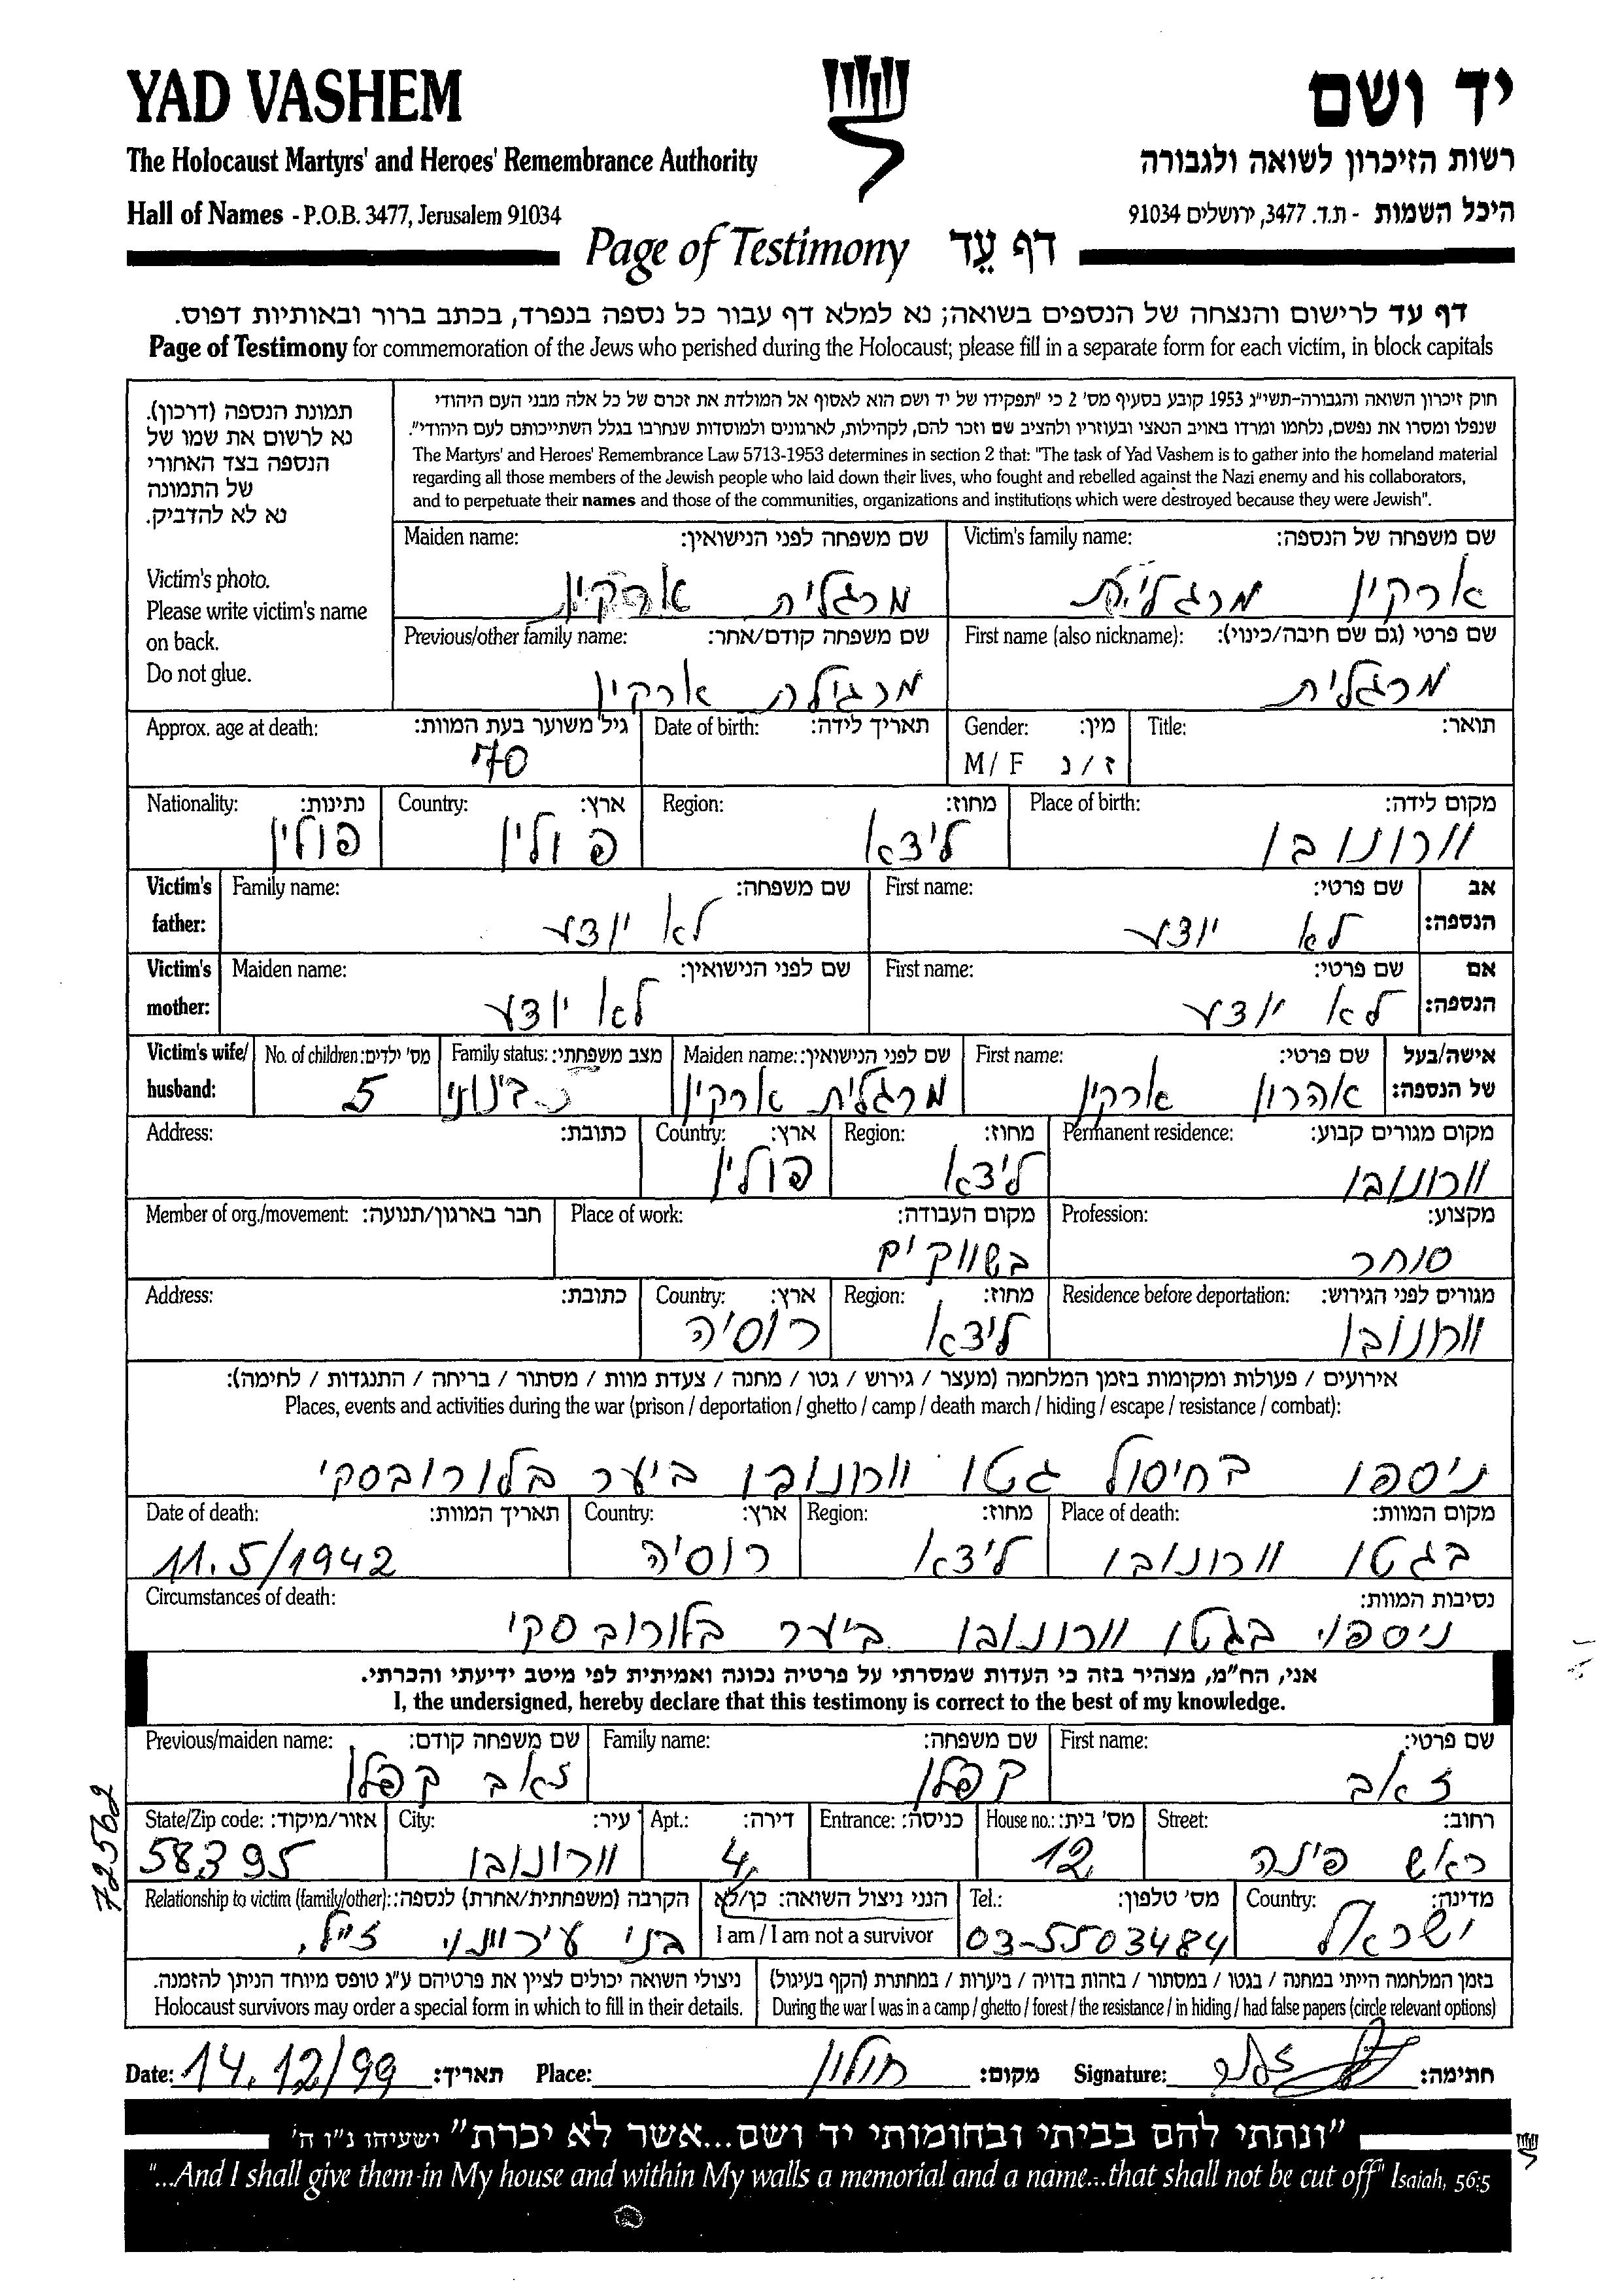 YAD VASHEM
יד ושם
The Holocaust Martyrs' and Heroes' Remembrance Authority
רשות הזיכרון לשואה ולגבורה
Hall of Names - P.O.B. 3477, Jerusalem 91034
היכל השמות - ת.ד. 3477, ירושלים 91034
Page of Testimony דף עֵד
דף עד לרישום והנצחה של הנספים בשואה; נא למלא דף עבור כל נספה בנפרד, בכתב ברור ובאותיות דפוס.
Page of Testimony for commemoration of the Jews who perished during the Holocaust; please fill in a separate form for each victim, in block capitals
תמונת הנספה (דרכון).
נא לרשום את שמו של
הנספה בצד האחורי
של התמונה
נא לא להדביק.
Victim's photo.
Please write victim's name
on back.
Do not glue.
חוק זיכרון השואה והגבורה-תשי"ג 1953 קובע בסעיף מס' 2 כי "תפקידו של יד ושם הוא לאסוף אל המולדת את זכרם של כל אלה מבני העם היהודי
שנפלו ומסרו את נפשם, נלחמו ומרדו באויב הנאצי ובעוזריו ולהציב שם וזכר להם, לקהילות, לארגונים ולמוסדות שנחרבו בגלל השתייכותם לעם היהודי".
The Martyrs' and Heroes' Remembrance Law 5713-1953 determines in section 2 that: "The task of Yad Vashem is to gather into the homeland material
regarding all those members of the Jewish people who laid down their lives, who fought and rebelled against the Nazi enemy and his collaborators,
and to perpetuate their names and those of the communities, organizations and institutions which were destroyed because they were Jewish".
Victim's family name: שם משפחה של הנספה:
ארקין מרגלית
Maiden name: שם משפחה לפני הנישואין:
מרגלית ארקין
First name (also nickname): שם פרטי (גם שם חיבה/כינוי):
מרגלית
Previous/other family name: שם משפחה קודם/אחר:
מרגילת ארקין
Title: תואר:
Gender: מין:
M / F ז / נ
Date of birth: תאריך לידה:
Approx. age at death: גיל משוער בעת המוות:
70
Place of birth: מקום לידה:
וורונובו
Region: מחוז:
לידא
Country: ארץ:
פולין
Nationality: נתינות:
פולין
Victim's father: אב הנספה:
First name: שם פרטי:
לא יודע
Family name: שם משפחה:
לא יודע
Victim's mother: אם הנספה:
First name: שם פרטי:
לא יודע
Maiden name: שם לפני הנישואין:
לא יודע
Victim's wife/ husband: אישה/בעל של הנספה:
First name: שם פרטי:
אהרון ארקין
Maiden name: שם לפני הנישואין:
מרגלית ארקין
Family status: מצב משפחתי:
בינוני
No. of children: מס' ילדים:
5
Permanent residence: מקום מגורים קבוע:
וורונובו
Region: מחוז:
לידא
Country: ארץ:
פולין
Address: כתובת:
Profession: מקצוע:
סוחר
Place of work: מקום העבודה:
בשווקים
Member of org./movement: חבר בארגון/תנועה:
Residence before deportation: מגורים לפני הגירוש:
וורונובו
Region: מחוז:
לידא
Country: ארץ:
רוסיה
Address: כתובת:
אירועים / פעולות ומקומות בזמן המלחמה (מעצר / גירוש / גטו / מחנה / צעדת מוות / מסתור / בריחה / התנגדות / לחימה):
Places, events and activities during the war (prison / deportation / ghetto / camp / death march / hiding / escape / resistance / combat):
ניספו בחיסול גטו וורונובו ביער בלורובסקי
Place of death: מקום המוות:
בגטו וורונובו
Region: מחוז:
לידא
Country: ארץ:
רוסיה
Date of death: תאריך המוות:
11.5/1942
Circumstances of death: נסיבות המוות:
ניספו בגטו וורונובו ביער בלורובסקי
אני, הח"מ, מצהיר בזה כי העדות שמסרתי על פרטיה נכונה ואמיתית לפי מיטב ידיעתי והכרתי.
I, the undersigned, hereby declare that this testimony is correct to the best of my knowledge.
First name: שם פרטי:
זאב
Family name: שם משפחה:
קפלן
Previous/maiden name: שם משפחה קודם:
זאב קפלן
Street: רחוב:
ראש פינה
House no.: מס' בית:
12
Entrance: כניסה:
Apt.: דירה:
4
City: עיר:
וורונובו
State/Zip code: אזור/מיקוד:
58395
72562
Country: מדינה:
ישראל
Tel.: מס' טלפון:
03-5503484
הנני ניצול השואה: כן/לא
I am / I am not a survivor
Relationship to victim (family/other): הקרבה (משפחתית/אחרת) לנספה:
בני עירייני ז"ל.
בזמן המלחמה הייתי במחנה / בגטו / במסתור / בזהות בדויה / ביערות / במחתרת (הקף בעיגול)
During the war I was in a camp / ghetto / forest / the resistance / in hiding / had false papers (circle relevant options)
ניצולי השואה יכולים לציין את פרטיהם ע"ג טופס מיוחד הניתן להזמנה.
Holocaust survivors may order a special form in which to fill in their details.
Date: 14.12/99 תאריך: Place: חולון מקום: Signature: חתימה:
"ונתתי להם בביתי ובחומותי יד ושם...אשר לא יכרת" ישעיהו נ"ו ה'
"...And I shall give them in My house and within My walls a memorial and a name...that shall not be cut off" Isaiah, 56:5